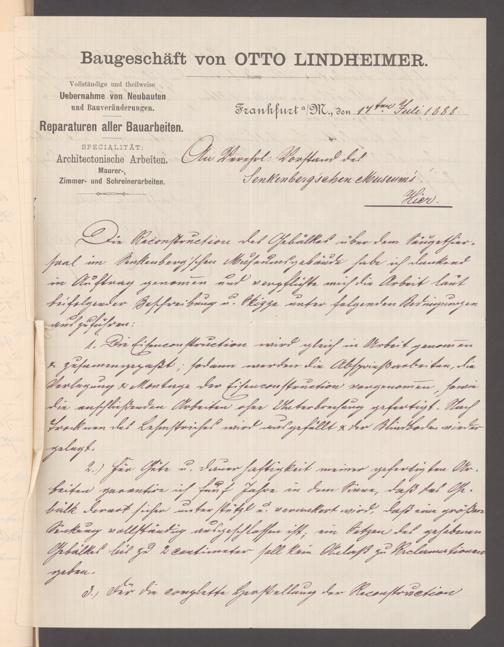 Baugeschäft von OTTO LINDHEIMER.
Vollständige und theilweise
Uebernahme von Neubauten
und Bauveränderungen.
Reparaturen aller Bauarbeiten.
SPECIALITÄT:
Architectonische Arbeiten.
Maurer-,
Zimmer- und Schreinerarbeiten.
Frankfurt a/M., den 17ten Juli 1888
An Vorstand des
Senkenbergschen Museum's
Hier.
Die Reconstruction des Gebälkes über dem Säugethier-
saal im Senkenberg'schen Museumsgebäude habe ich dankend
in Auftrag genommen und verpflichte mich die Arbeit laut
beifolgender Beschreibung u. Skizze unter folgenden Bedingungen
auszuführen:
1. Die Eisenconstruction wird gleich in Arbeit genommen
& zusammengepaßt; sodann werden die Abspreißarbeiten, die
Verlegung & Montage der Eisenconstruction vorgenommen, sowie
die anschließenden Arbeiten ohne Unterbrechung gefertigt. Nach
Trocknen des Lehmstriches wird ausgefüllt & der Blindboden wieder
gelegt.
2.) Für Güte u. Dauerhaftigkeit meiner gefertigten Ar-
beiten garantire ich fünf Jahre in dem Sinne, daß das Ge-
bälk derart sicher unterstützt u. verankert wird, daß eine größere
Senkung vollständig ausgeschlossen ist; ein Setzen des gehobenen
Gebälkes bis zu 2 centimeter soll kein Anlaß zu Reclamationen
geben.
3.) Für die complette Herstellung der Reconstruction